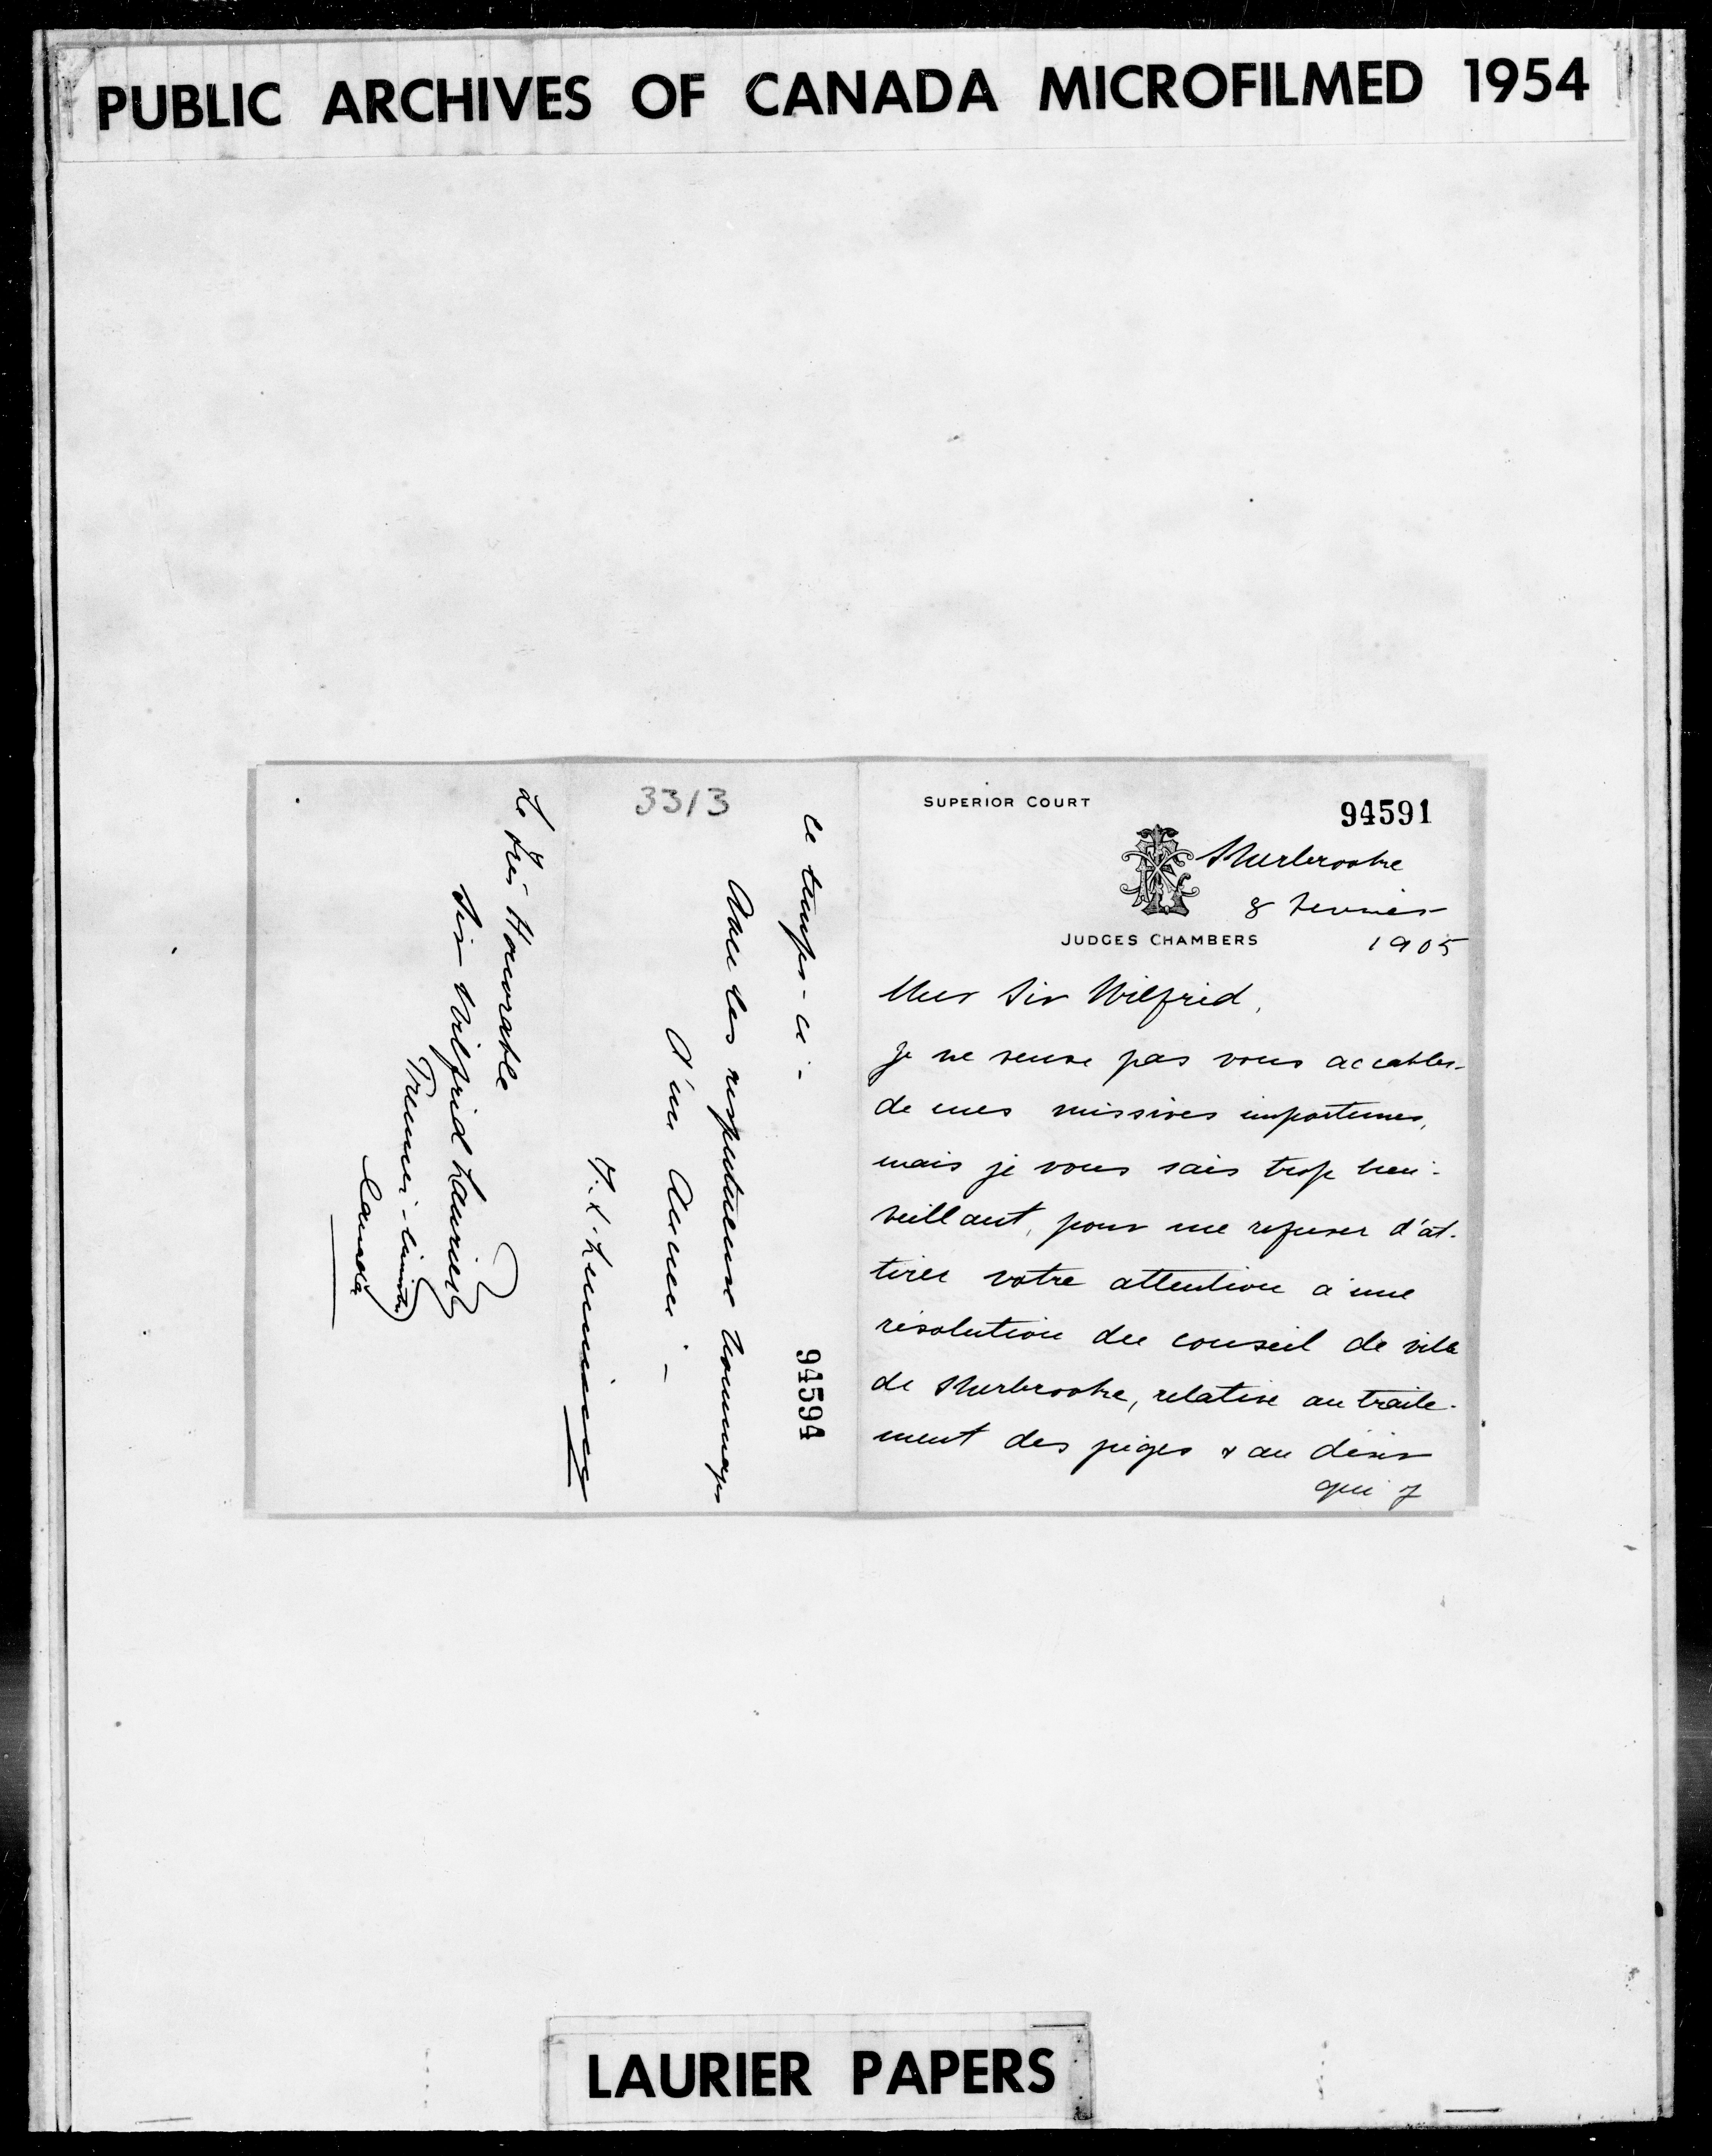 PUBLIC ARCHIVES OF CANADA MICROFILMED 1954
SUPERIOR COURT
94591
Sherbrooke
8 Fevrier
1905
JUDGES CHAMBERS
Cher Sir Wilfrid,
Je ne veux pas vous accabler
de mes missives importunes,
mais je vous sais trop bien-
veillant, pour me refuser d'at-
tirer votre attention à une
résolution du conseil de ville
de Sherbrooke, relative au traite-
ment des juges & au désir
qui y
ce temps-ci-
94594
Avec les respectueux hommages
d'un Ancien-
3313
F. X. Lemieux
Le Très Honorable
Sir Wilfrid Laurier
Premier-Ministre
Canada
LAURIER PAPERS